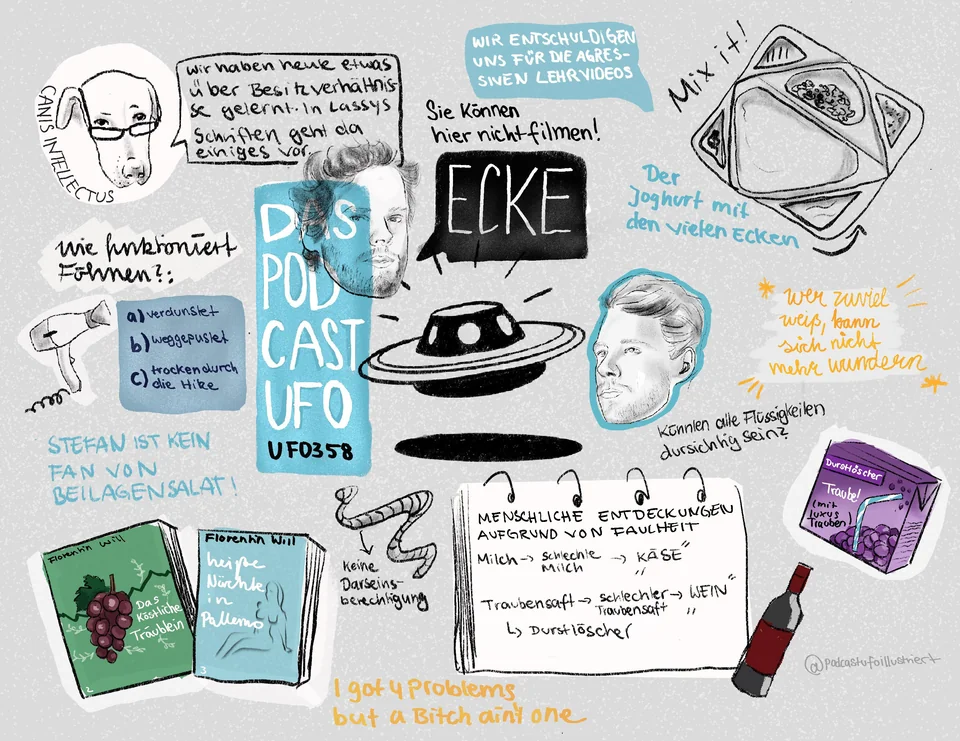 CANIS INTELLECTUS
wir haben heute etwas
über Besitzverhältnis-
se gelernt. In Lassys
Schriften geht da
einiges vor.
WIR ENTSCHULDIGEN
UNS FÜR DIE AGRES-
SIVEN LEHRVIDEOS
Sie können
hier nicht filmen!
ECKE
Mix it!
Der
Joghurt mit
den vielen Ecken
DAS
POD
CAST
UFO
UFO358
wie funktioniert
Föhnen?:
a) verdunstet
b) weggepustet
c) trocken durch
die Hike
wer zuviel
weiß, kann
sich nicht
mehr wundern
Könnten alle Flüssigkeiten
dursichtig sein?
STEFAN IST KEIN
FAN VON
BEILAGENSALAT!
Durstlöscher
Traube!
(mit
luxus
Trauben)
Florentin Will
Das
Köstliche
Träublein
2
Florentin Will
heiße
Nächte
in
Palermo
3
keine
Darseins-
berechtigung
MENSCHLICHE ENTDECKUNGEN
AUFGRUND VON FAULHEIT
Milch → schlechte Milch → "KÄSE"
Traubensaft → schlechter Traubensaft → "WEIN"
↳ Durstlöscher
@podcastufoillustriert
I got 4 Problems
but a Bitch ain't one